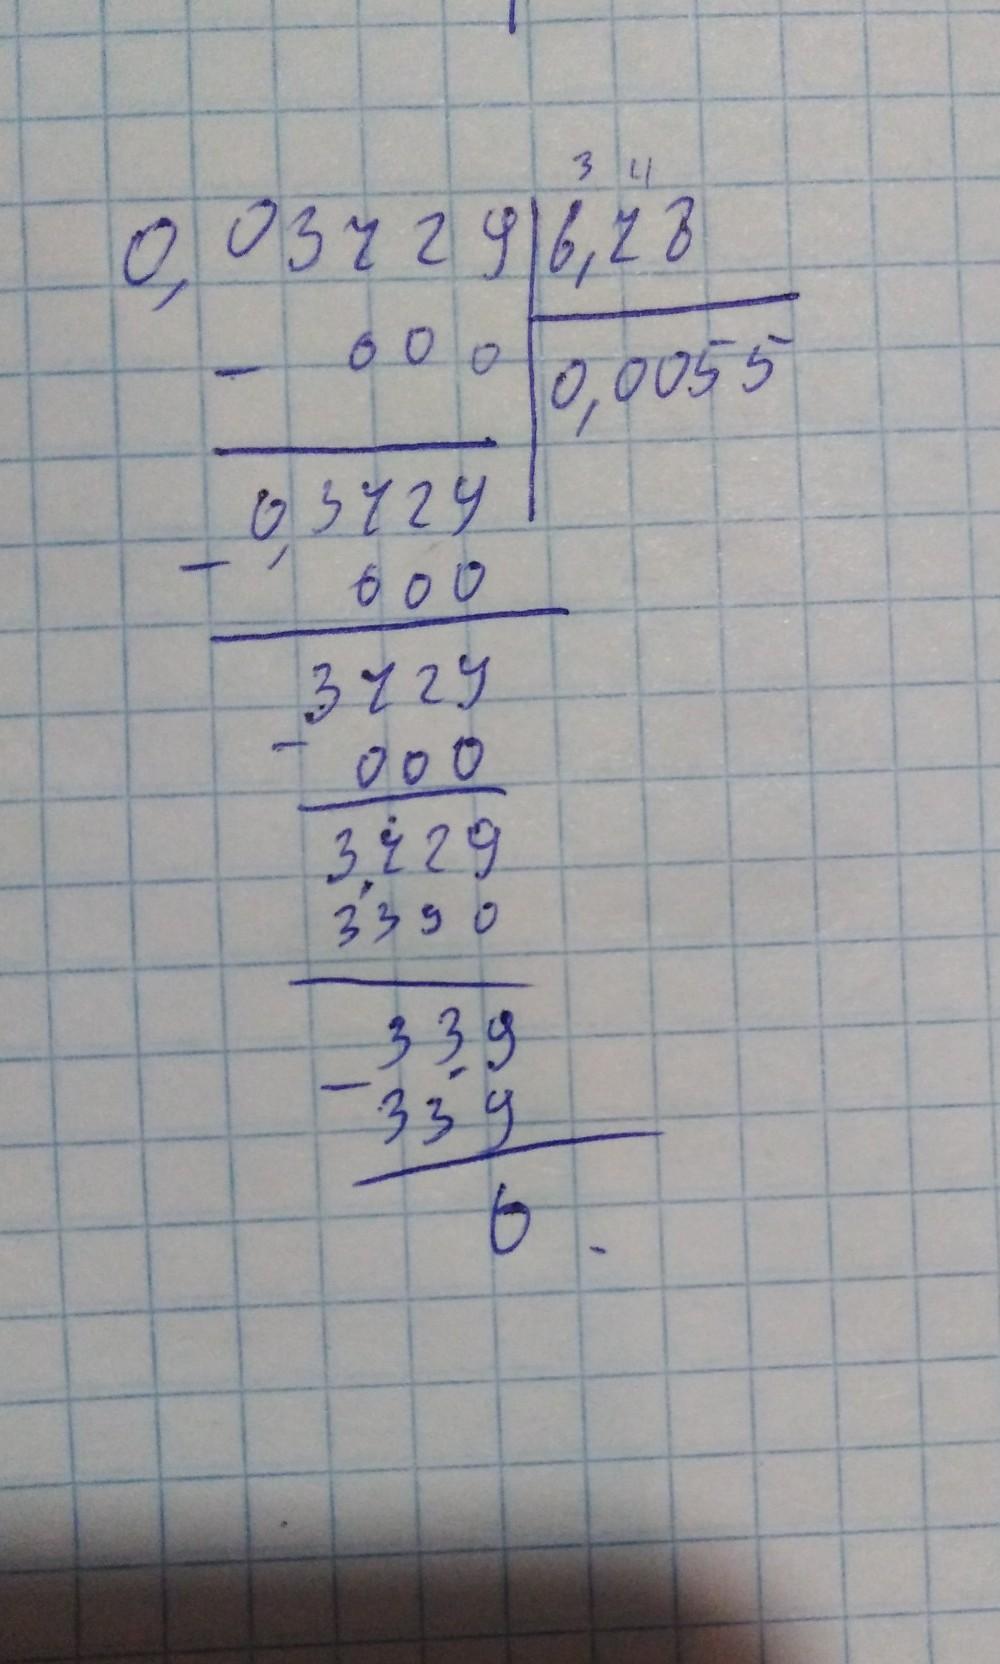 3 4
0,03729 6,78
- 000 0,0055
0,3729
- 000
3729
- 000
3729
3390
339
- 339
0